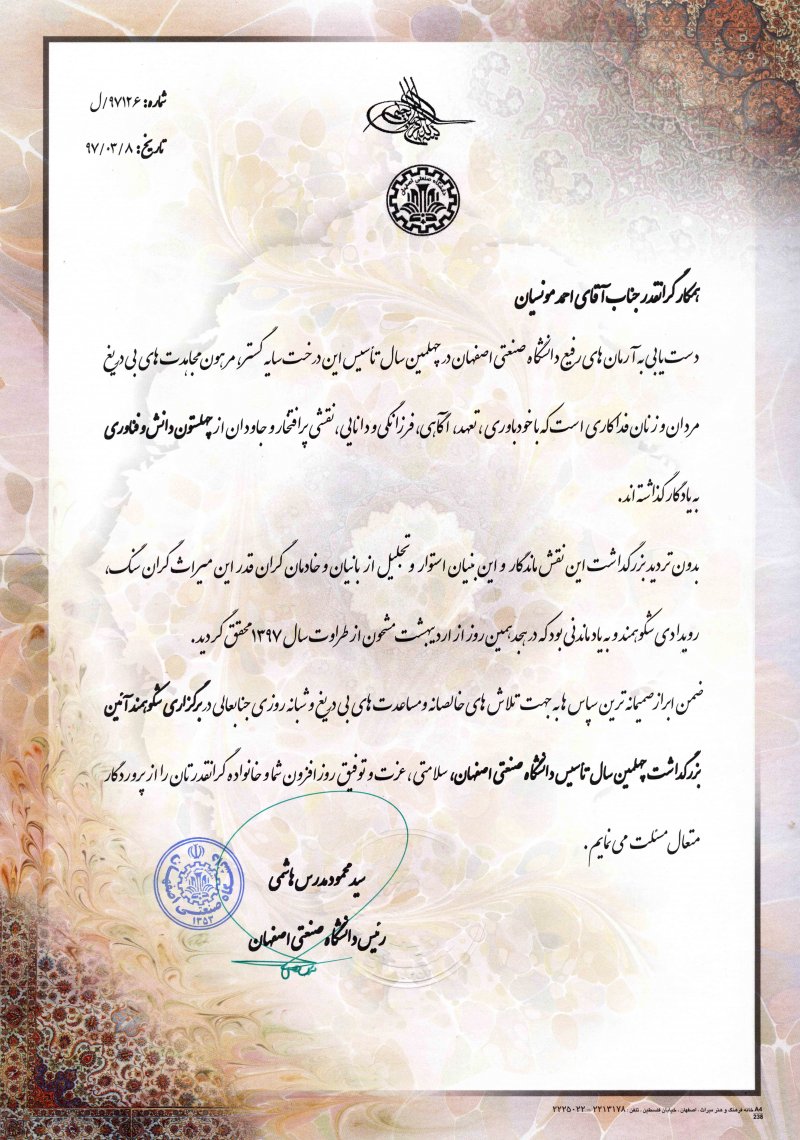 شماره: ۹۷۱۲۶/ل
تاریخ: ۹۷/۰۳/۸
دانشگاه صنعتی اصفهان
همکار گرانقدر جناب آقای احمد مونسیان
دست یابی به آرمان های رفیع دانشگاه صنعتی اصفهان در چهلمین سال تأسیس این درخت سایه گستر، مرهون مجاهدت های بی دریغ
مردان و زنان فداکاری است که با خودباوری، تعهد، آگاهی، فرزانگی و دانایی، نقشی پرافتخار و جاودان از چهلستون دانش و فناوری
به یادگار گذاشته اند.
بدون تردید بزرگداشت این نقش ماندگار و این بنیان استوار و تجلیل از بانیان و خادمان گران قدر این میراث گران سنگ،
رویدادی شکوهمند و به یاد ماندنی بود که در هجدهمین روز از اردیبهشت مشحون از طراوت سال ۱۳۹۷ محقق گردید.
ضمن ابراز صمیمانه ترین سپاس ها به جهت تلاش های خالصانه و مساعدت های بی دریغ و شبانه روزی جنابعالی در برگزاری شکوهمند آئین
بزرگداشت چهلمین سال تأسیس دانشگاه صنعتی اصفهان، سلامتی، عزت و توفیق روز افزون شما و خانواده گرانقدرتان را از پروردگار
متعال مسئلت می نمایم.
سید محمود مدرس هاشمی
رئیس دانشگاه صنعتی اصفهان
صنعتی اصفهان
۱۳۵۳
A4 خانه فرهنگ و هنر میراث ، اصفهان ، خیابان فلسطین . تلفن : ۲۲۱۳۱۷۸ - ۲۲۲۵۰۲۲
238